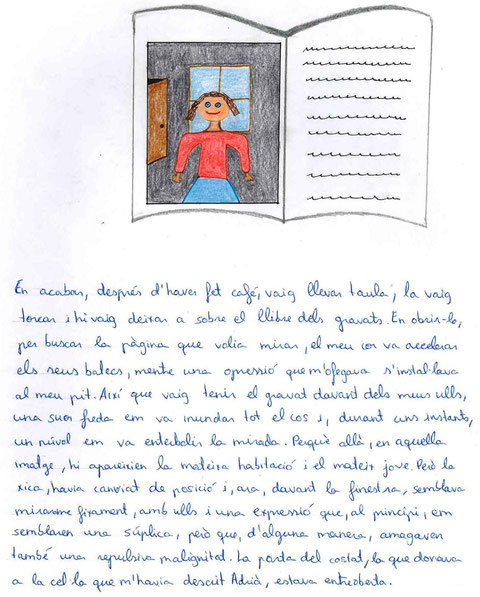 En acabar, després d'haver fet café, vaig llevar taula, la vaig
torcar i hi vaig deixar a sobre el llibre dels gravats. En obrir-lo,
per buscar la pàgina que volia mirar, el meu cor va accelerar
els seus batecs, mentre una opressió que m'ofegava s'instal·lava
al meu pit. Així que vaig tenir el gravat davant dels meus ulls,
una suor freda em va inundar tot el cos i, durant uns instants,
un núvol em va enterbolir la mirada. Perquè allà, en aquella
imatge, hi apareixien la mateixa habitació i el mateix jove. Però la
xica, havia canviat de posició i, ara, davant la finestra, semblava
mirar-me fixament, amb ulls i una expressió que, al principi, em
semblaren una súplica, però que, d'alguna manera, amagaven
també una repulsiva malignitat. La porta del costat, la que donava
a la cel·la que m'havia descrit Adrià, estava entreoberta.